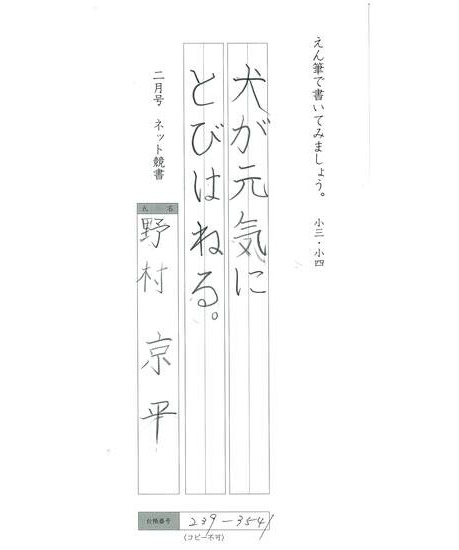 えん筆で書いてみましょう。 小三・小四
犬が元気に
とびはねる。
二月号 ネット競書
氏名
野村 京平
台帳番号 239-3541
(コピー不可)